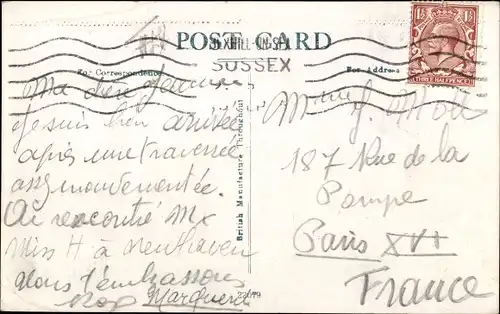 POST CARD
BEXHILL-ON-SEA
SUSSEX
For Correspondence
For Address
THREE HALFPENCE
Ma chère Jeanne
Je suis bien arrivée
après une traversée
assez mouvementée.
Ai rencontré Mr
Miss H à Newhaven
Nous t'embrassons
Marguerite
British Manufacture Throughout
22079
Mme J.
187 Rue de la
Pompe
Paris XVI
France